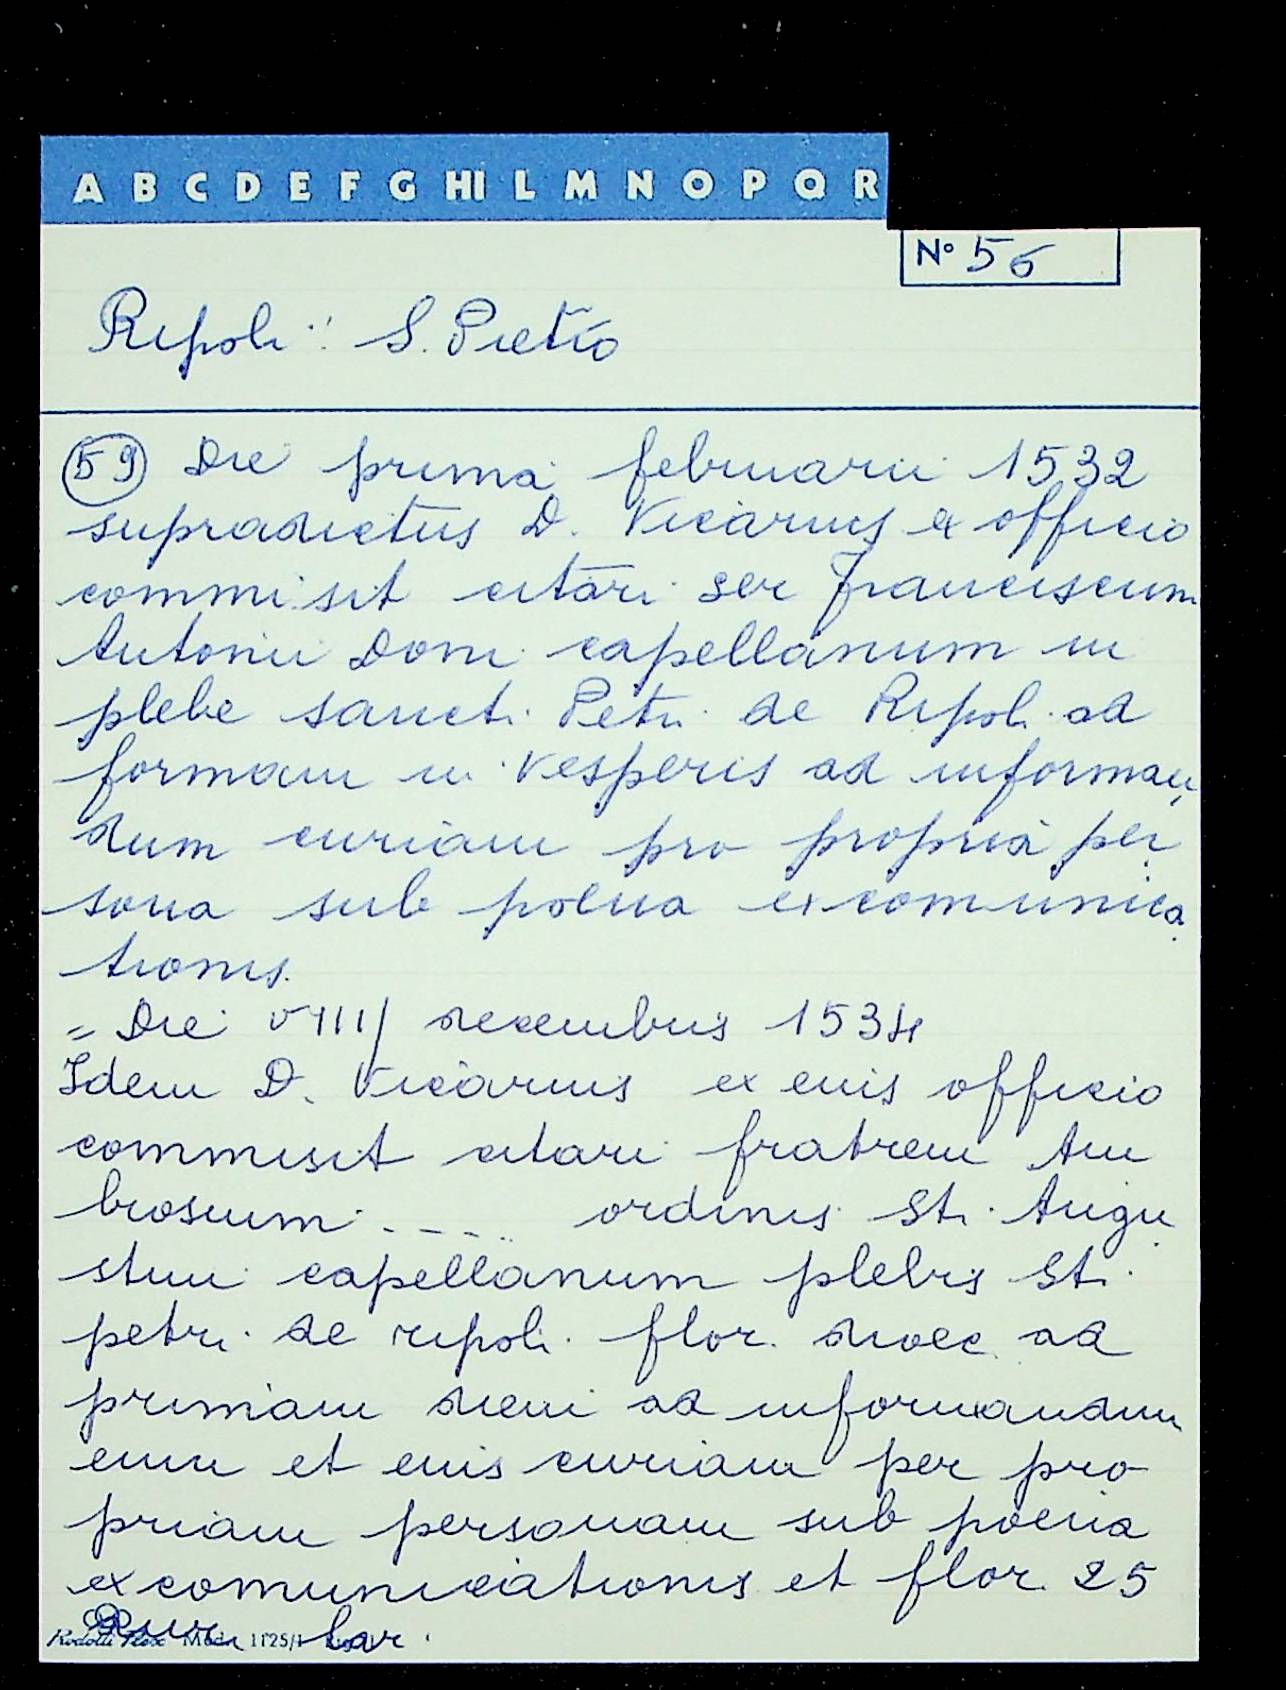 A B C D E F G HI L M N O P Q R
N° 56
Ripoli: S. Pietro
59 Die prima februarii 1532
supradictus D. Vicarius ex officio
commisit citari ser Franciscum
Antonii Doni capellanum in
plebe sancti Petri de Ripoli ad
formam in Vesperis ad informan
dum curiam pro propria per
sona sub poena excomunica
tionis.
= Die VIIII decembris 1534
Idem D. Vicarius ex eius officio
commisit citari fratrem Am
brosium .... ordinis Sti. Augu
stini capellanum plebis Sti.
petri de ripoli flor. dioec. ad
primam diem ad informandum
eum et eius curiam per pro
priam personam sub poena
excomunicationis et flor. 25
lar.